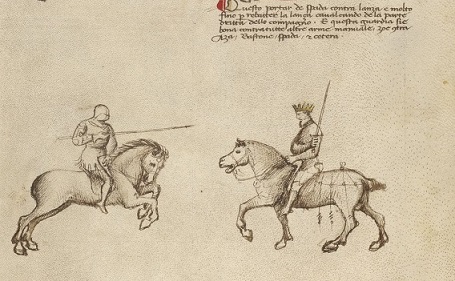 Questo portar de spada contra lanza e molto
fino per rebatter la lança cavalcando de la parte
dritta dello compagno. E questa guardia sie
bona contra tutte altre arme manuale, zoe
Aza, Bastone, spada, et cetera.